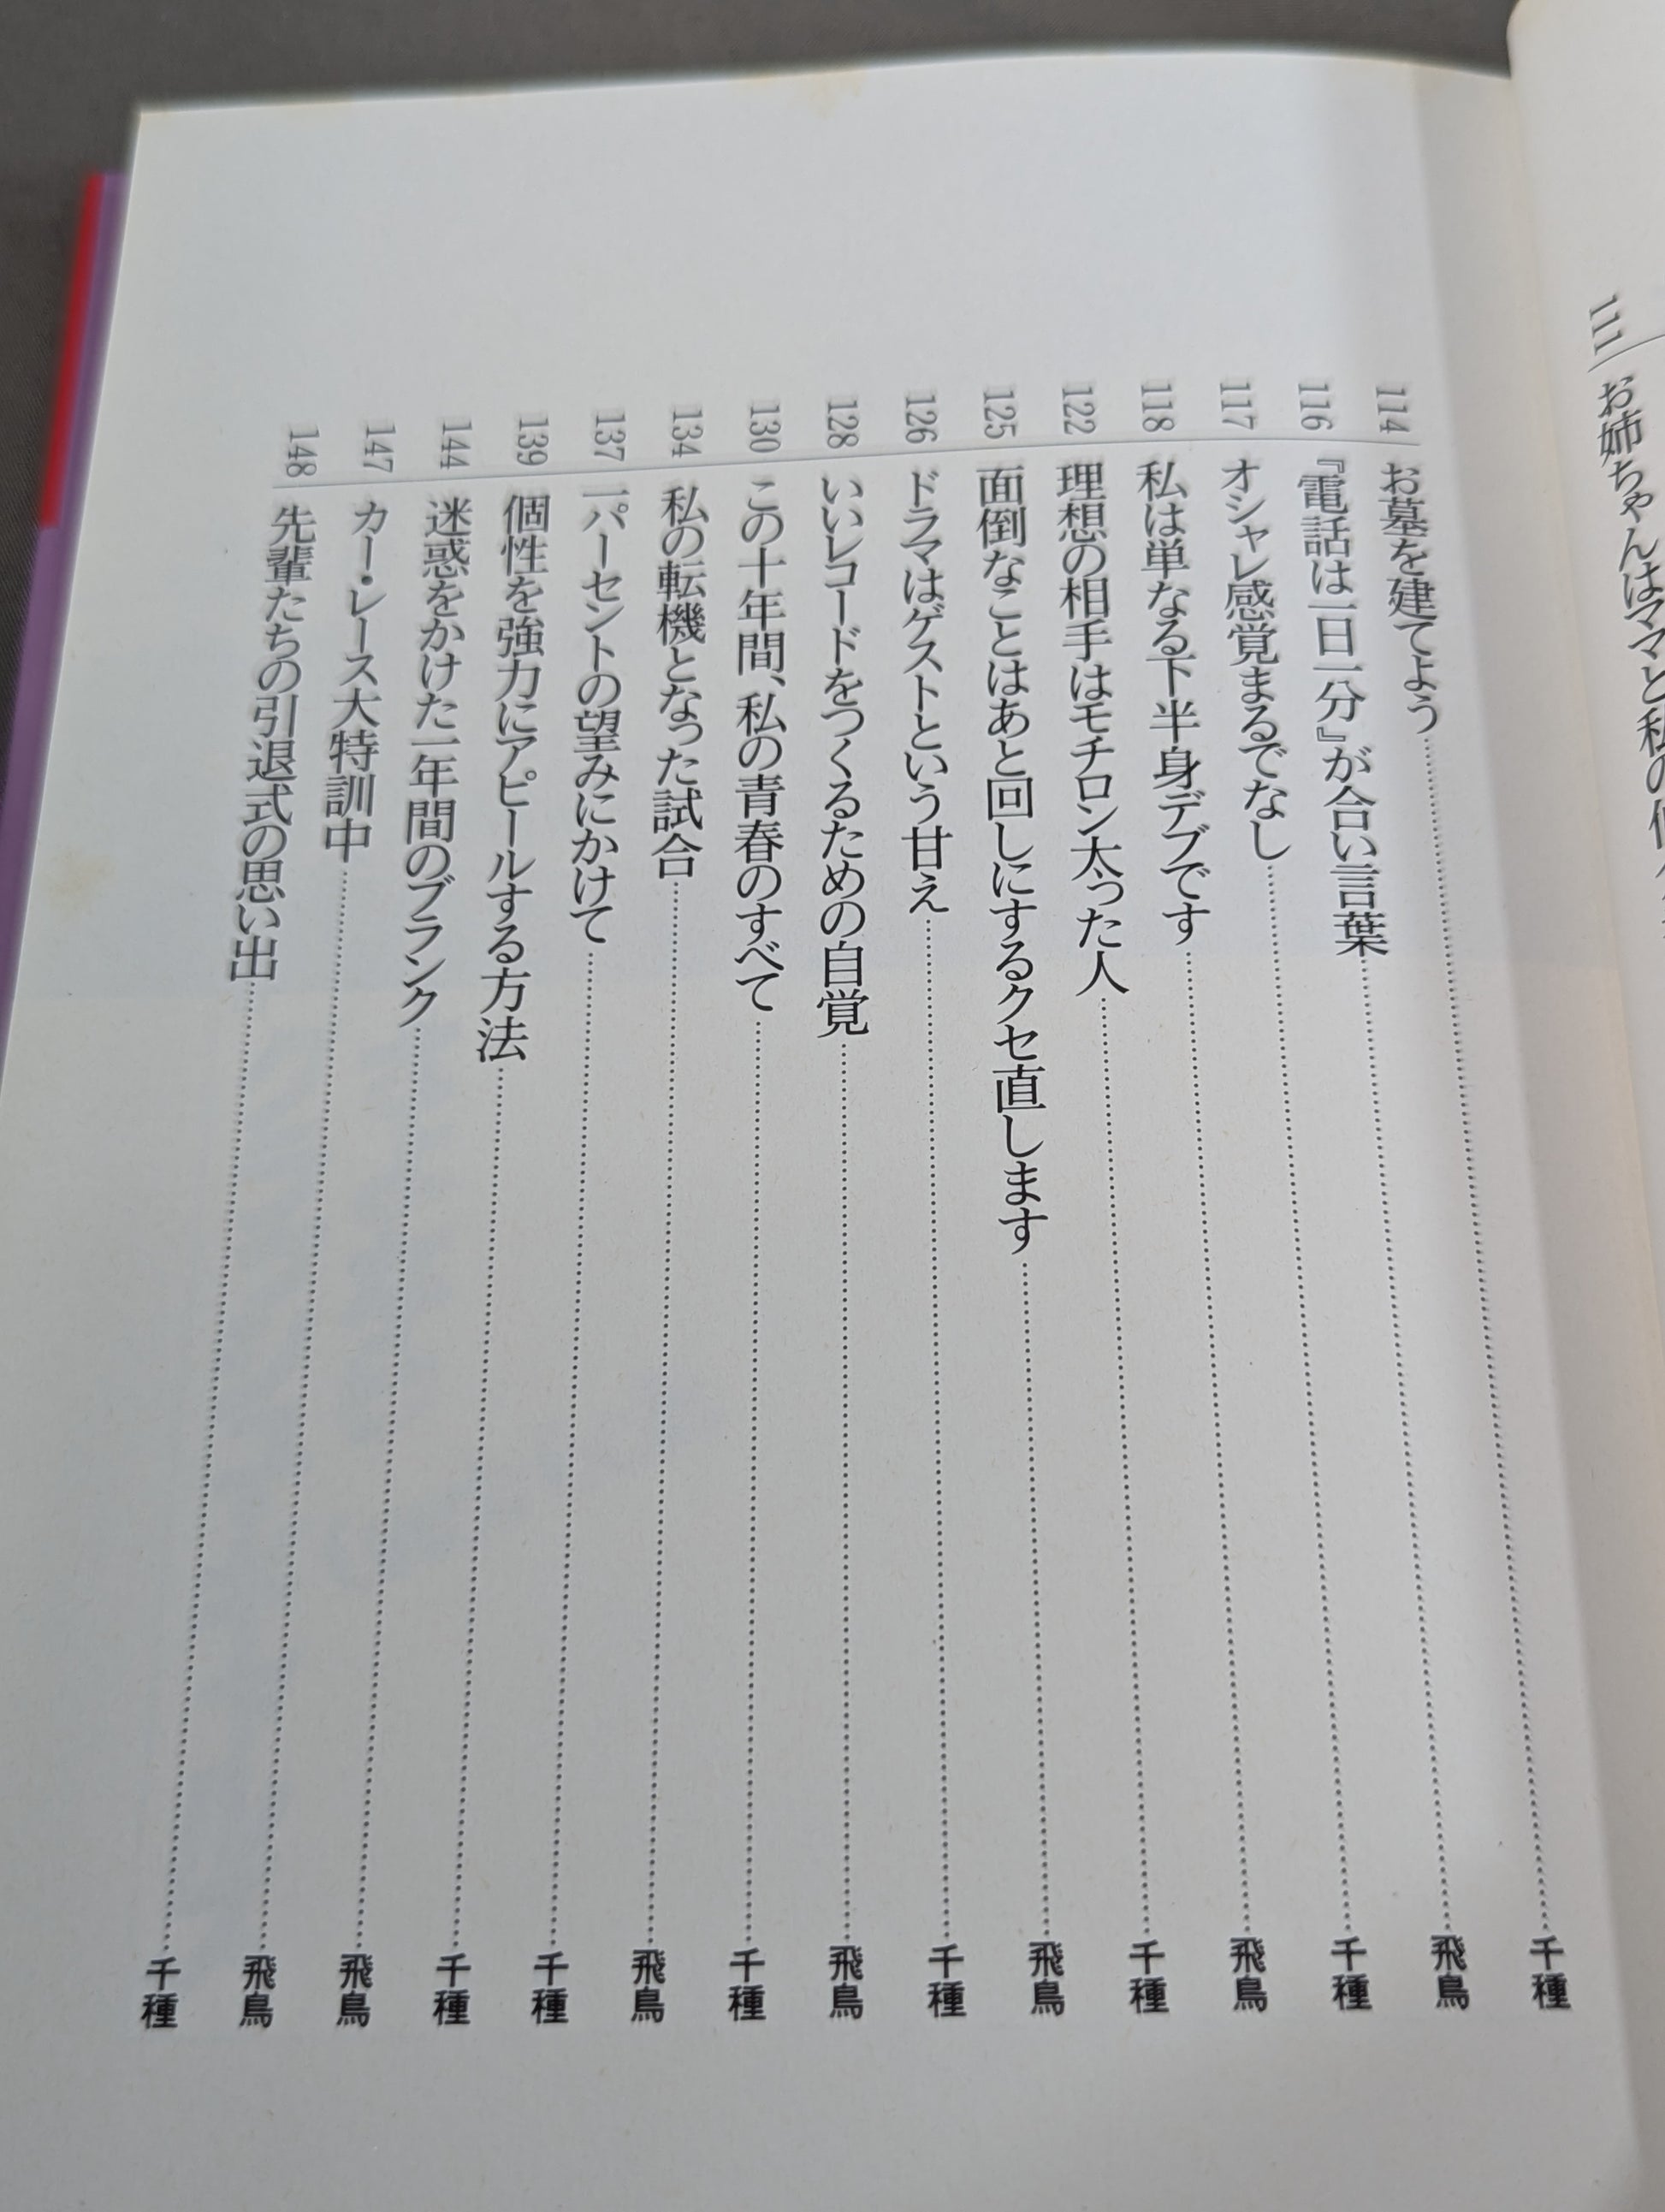 111 お姉ちゃんはママと私の
114 お墓を建てよう……千種
116 『電話は一日一分』が合い言葉……飛鳥
117 オシャレ感覚まるでなし……千種
118 私は単なる下半身デブです……飛鳥
122 理想の相手はモチロン太った人……千種
125 面倒なことはあと回しにするクセ直します……飛鳥
126 ドラマはゲストという甘え……千種
128 いいレコードをつくるための自覚……飛鳥
130 この十年間、私の青春のすべて……千種
134 私の転機となった試合……飛鳥
137 一パーセントの望みにかけて……千種
139 個性を強力にアピールする方法……千種
144 迷惑をかけた一年間のブランク……飛鳥
147 カー・レース大特訓中……飛鳥
148 先輩たちの引退式の思い出……千種